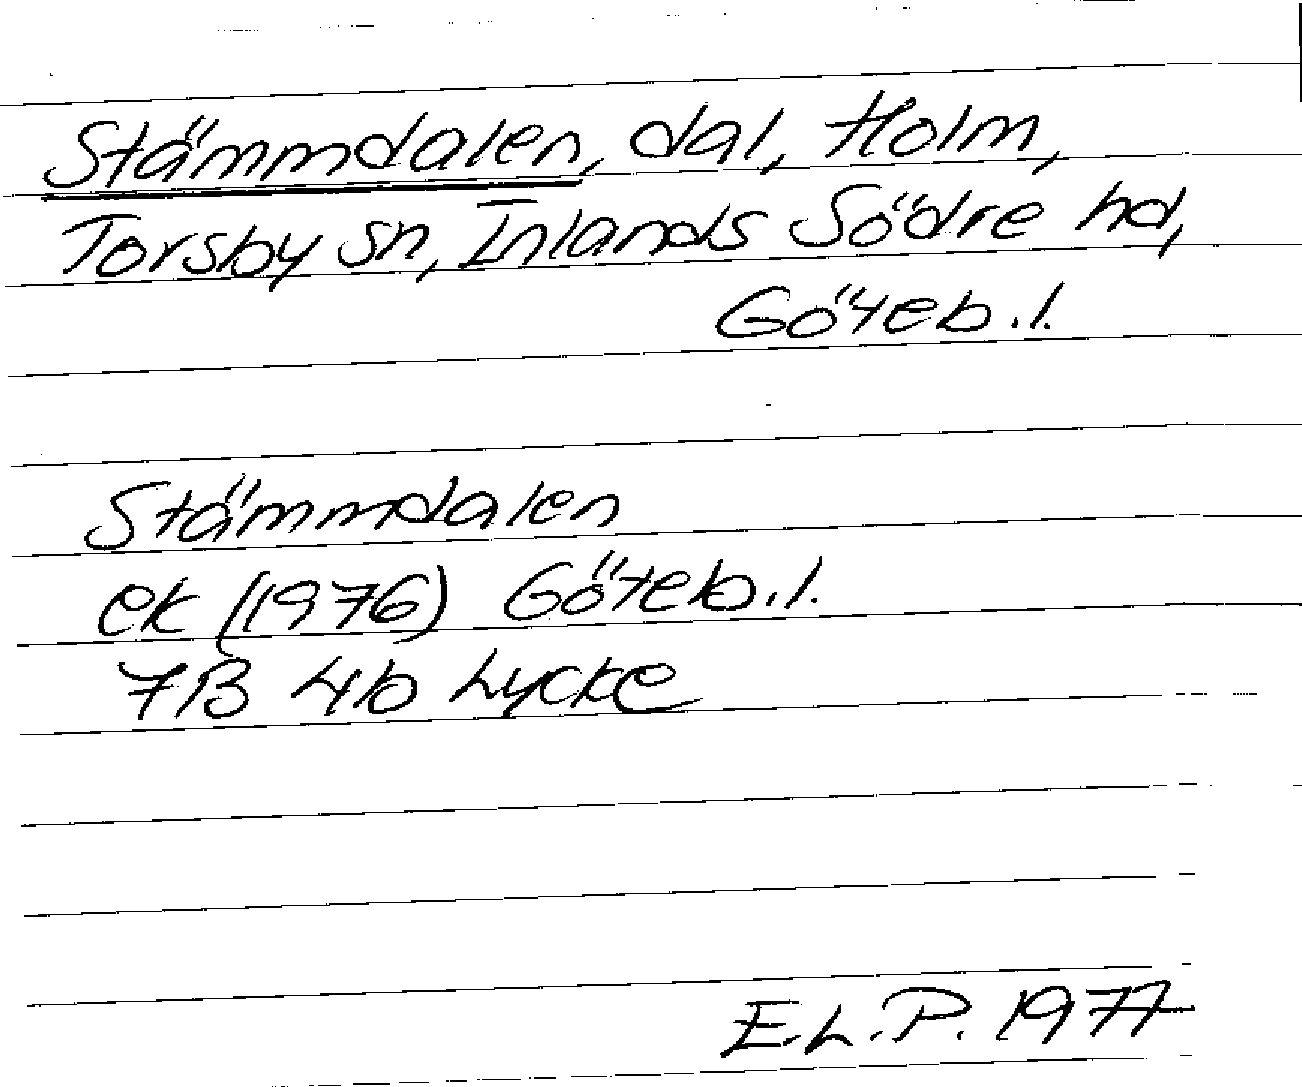 Stämmdalen, dal, Holm,
Torsby sn, Inlands Södre hd,
Göteb.l.
Stämmdalen
ek (1976) Göteb.l.
7B 4b Lycke
E.L.P. 1977